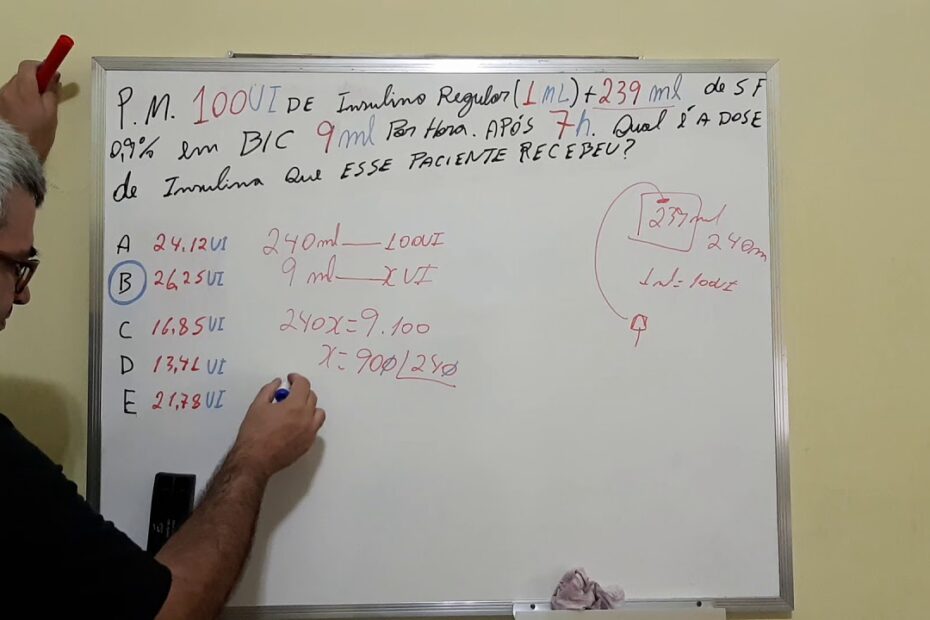 P.M. 100UI DE Insulina Regular (1ML) + 239 ml de SF
0,9% em BIC 9ml Por Hora. APÓS 7h. Qual é A DOSE
de Insulina Que ESSE PACIENTE RECEBEU?
A 24,12UI
B 26,25UI
C 16,85UI
D 13,41 UI
E 21,78UI
240ml — 100UI
9 ml — x UI
240x = 9.100
x = 900 240
239ml
240m
1ml = 100UI